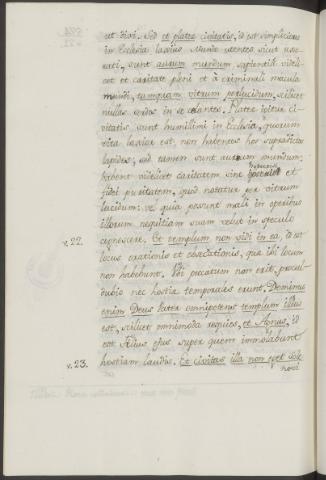 est dixi. Sed et platea civitatis, id est simplicitas
in Ecclesia laxius mundo utentes sicut
sunt aurum mundum, sapientiâ videli-
cet et caritate pleni et à criminali macula
mundi, tamquam vitrum perlucidum, scilicet
nullas sordes in se celantes. Platea igitur ci-
vitatis sunt humillimi in Ecclesia, quorum
vita laxior est, non habentes hos supradictos
lapides, sed tamen sunt aurum mundum.
habent videlicet caritatem sine et
fidei puritatem, quod notatur per vitrum
lucidum: ve quia possunt mali in operibus
illorum nequitiam suam velut in speculo
v. 22. cognoscere. Et templum non vidi in ea, id est
locus orationis et obsecrationis, quia ibi locum
non habebunt. Ubi peccatum non erit, procul
dubio nec hostiæ temporales erunt. Dominus
enim Deus Pater omnipotens templum illius
est, scilicet omnimoda requies, et Agnus, id
est Filius ejus super quem immolabunt
v. 23. hostiam laudis. Et civitas illa non eget Sole